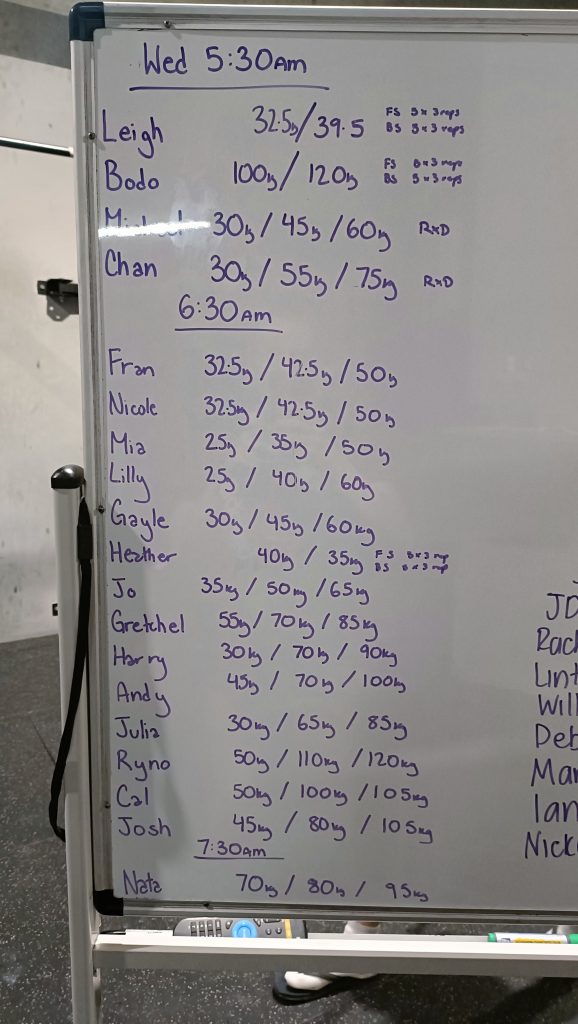 Wed 5:30AM
Leigh 32.5kg/39.5 FS 5x3reps
BS 5x3 reps
Bodo 100kg/ 120kg FS 5x3reps
BS 5x3 reps
30kg / 45kg /60kg RxD
Chan 30kg / 55kg / 75kg RxD
6:30AM
Fran 32.5kg / 42.5kg / 50kg
Nicole 32.5kg / 42.5kg / 50kg
Mia 25kg / 35kg / 50kg
Lilly 25kg / 40kg / 60kg
Gayle 30kg / 45kg /60kg
Heather 40kg / 35kg FS 5x3rep
BS 5x3rep
Jo 35kg / 50kg / 65kg
Gretchel 55kg / 70kg / 85kg
Harry 30kg / 70kg / 90kg
Andy 45kg / 70kg / 100kg
Julia 30kg / 65kg / 85kg
Ryno 50kg / 110kg /120kg
Cal 50kg / 100kg /105kg
Josh 45kg / 80kg / 105kg
7:30AM
Nata 70kg / 80kg / 95kg
JD
Rac
Lint
Will
Deb
Mar
Ian
Nick